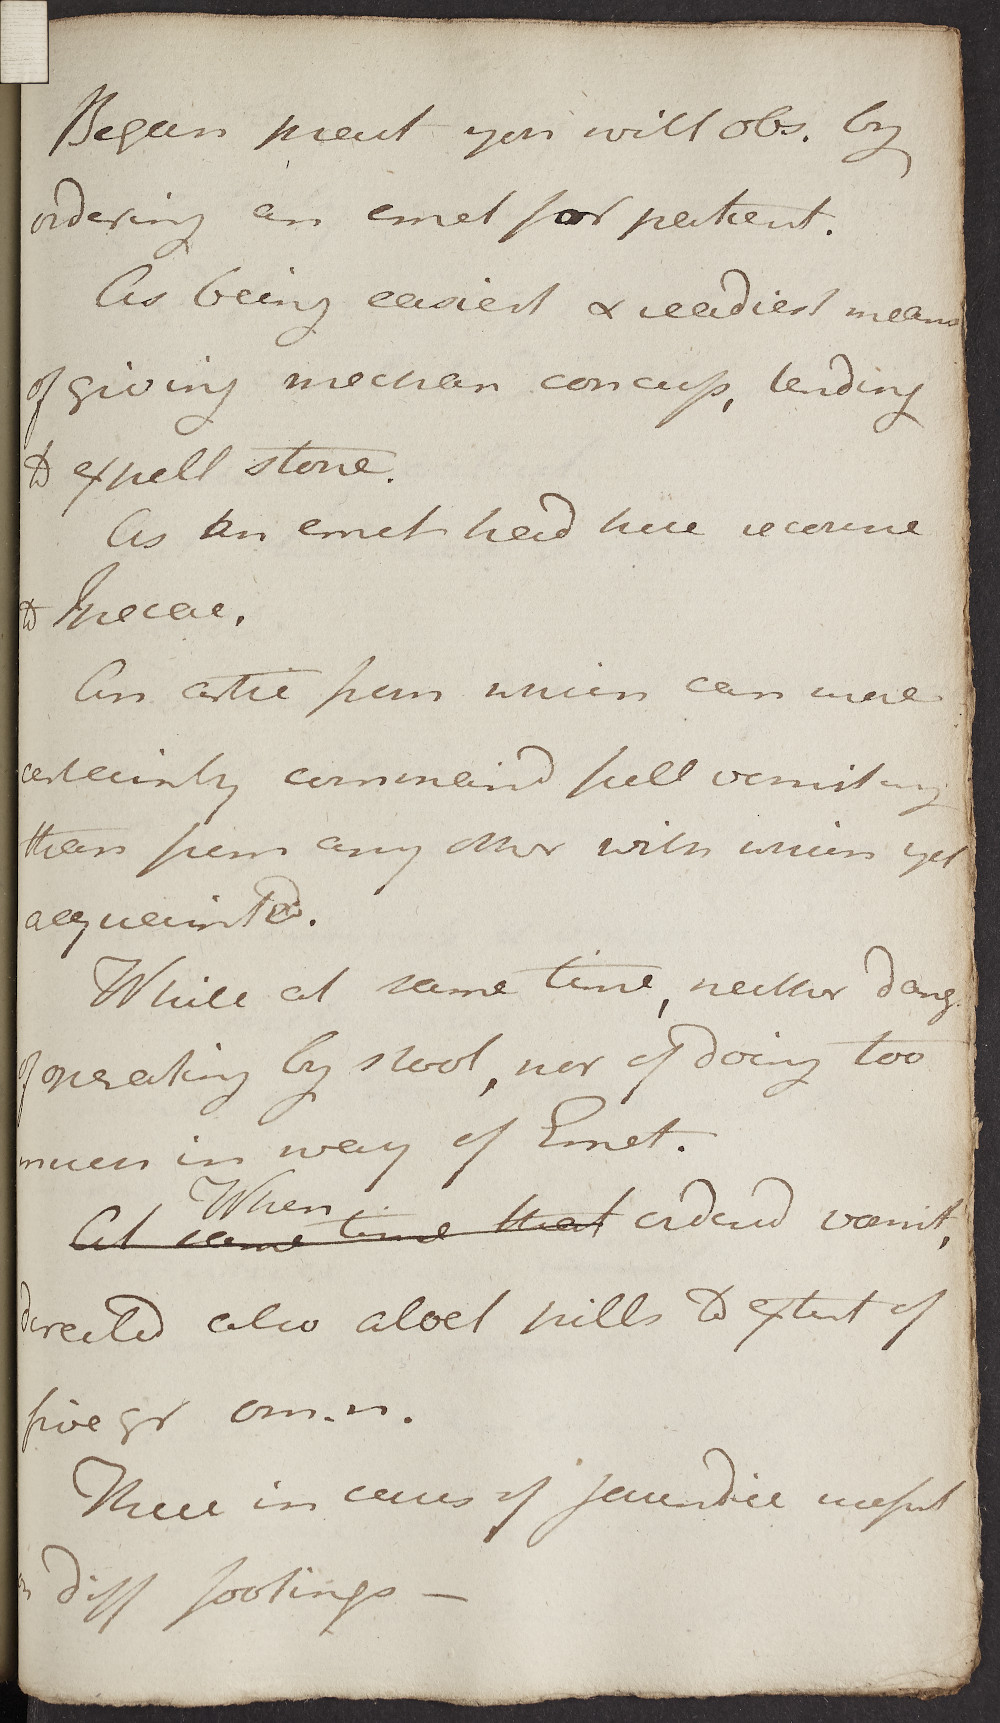 Began pract you will obs. by
ordering an emet for patient.
As being easiest & readiest means
of giving mechan concuss, tending
to expell stone.
As an emet head here recourse
to Ipecac.
An artic from which can more
certainly command full vomiting
than from any other with which yet
acquainted.
While at same time, neither dang
of operating by stool, nor of doing too
much in way of Emet.
When
At same time that ordered vomit,
directed also aloet pills to extent of
five gr om. n.
These in cases of jaundice useful
on diff footings —